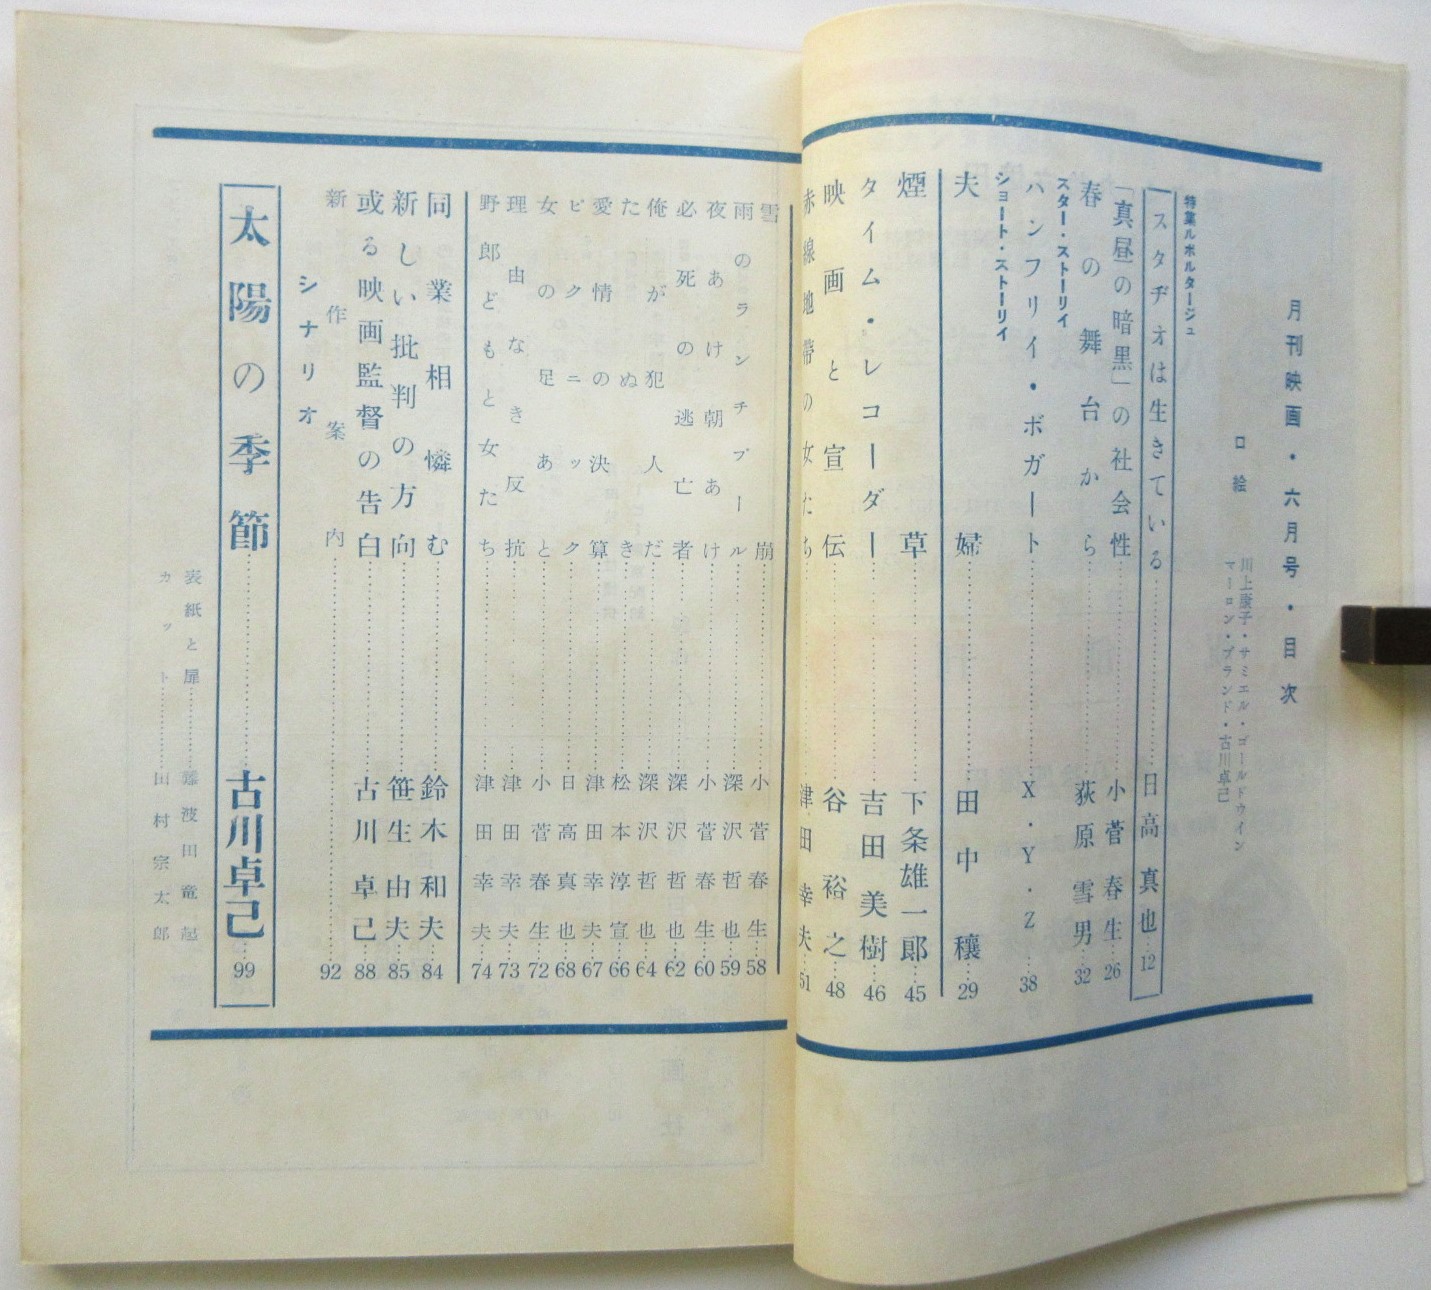 月刊映画・六月号・目次
口絵
川上康子・サミエル・ゴールドウイン
マーロン・ブランド・古川卓己
特集ルポルタージュ
スタヂオは生きている……日高真也…12
「真昼の暗黒」の社会性……小菅春生…26
春の舞台から……荻原雪男…32
スター・ストーリイ
ハンフリイ・ボガート……X・Y・Z…38
ショート・ストーリイ
夫婦……田中穰…29
煙草……下条雄一郎…45
タイム・レコーダー……吉田美樹…46
映画と宣伝……谷裕之…48
赤線地帯の女たち……津田幸夫…51
雪崩……小菅春生…58
雨のランチプール……深沢哲也…59
夜あけ朝あけ……小菅春生…60
必死の逃亡者……深沢哲也…62
俺が犯人だ……深沢哲也…64
たぬき……松本淳宣…66
愛情の決算……津田幸夫…67
ピクニック……日高真也…68
女の足あと……小菅春生…72
理由なき反抗……津田幸夫…73
野郎どもと女たち……津田幸夫…74
同業相憐む……鈴木和夫…84
新しい批判の方向……笹生由夫…85
或る映画監督の告白……古川卓己…88
新作案内……92
シナリオ
太陽の季節……古川卓己…99
表紙と扉……難波田竜起
カット……田村宗太郎